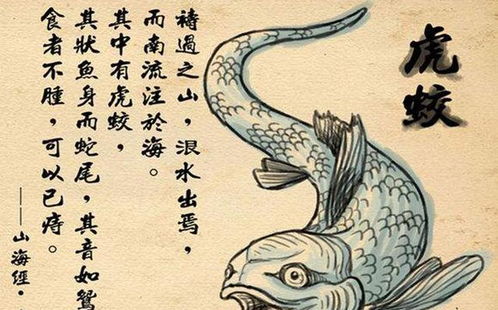 虎蛟
禱過之山，浪水出焉，
而南流注於海。
其中有虎蛟，
其狀魚身而蛇尾，其音如鴛
食者不腫，可以已痔。
——山海經·